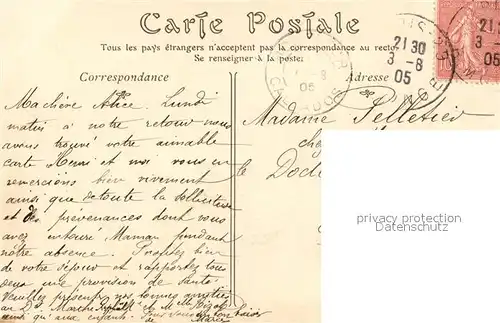 Carte Postale
Tous les pays étrangers n'acceptent pas la correspondance au recto.
Se renseigner à la poste.
Correspondance
Adresse
21 30
3 - 8
05
21
3
05
8
05
CALVADOS
Ma chère Alice. Lundi
matin à notre retour nous
avons trouvé votre aimable
carte Henri et moi vous en
remercions bien vivement
ainsi que de toute la sollicitude
et des prévenances dont vous
avez entouré Maman pendant
notre absence. Profitez bien
de votre séjour et rapportez tous
une provision de santé.
Veuillez présenter nos bonnes amitiés
au Dr Marthe et Melle
ainsi qu'aux enfants. Tous
Marie
Madame Pelletier
chez
le Doct
privacy protection
watermark